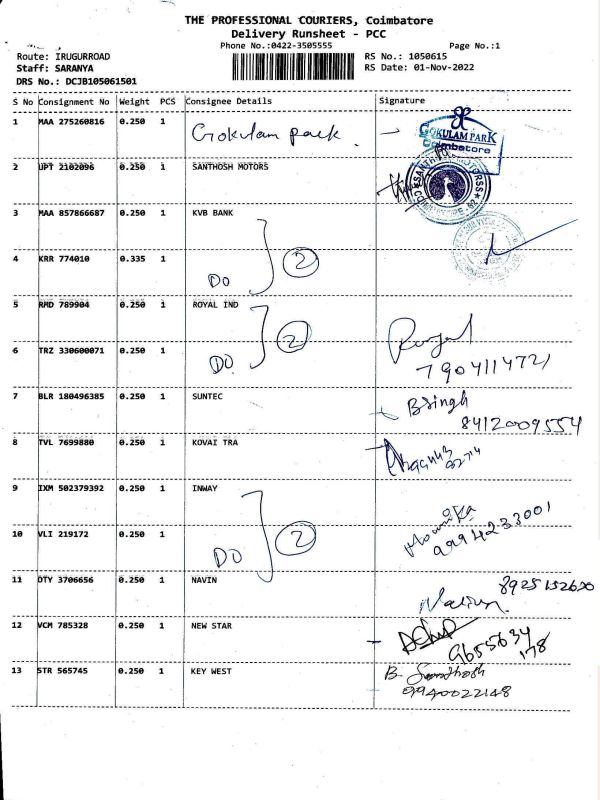 THE PROFESSIONAL COURIERS, Coimbatore
Delivery Runsheet - PCC
Phone No.:0422-3505555 Page No.:1
Route: IRUGURROAD RS No.: 1050615
Staff: SARANYA RS Date: 01-Nov-2022
DRS No.: DCJB105061501
S No Consignment No Weight PCS Consignee Details Signature
1 MAA 275260816 0.250 1 Gokulam park.
GOKULAM PARK
Coimbatore
2 UPT 2102096 0.250 1 SANTHOSH MOTORS
3 MAA 857866687 0.250 1 KVB BANK
4 KRR 774010 0.335 1 DO 2
5 RMD 789904 0.250 1 ROYAL IND
6 TRZ 330600071 0.250 1 DO 2
7904114721
7 BLR 180496385 0.250 1 SUNTEC Bringh
8412009554
8 TVL 7699880 0.250 1 KOVAI TRA
9 IXM 502379392 0.250 1 INWAY
10 VLI 219172 0.250 1 DO 2 Mounika
9994233001
11 OTY 3706656 0.250 1 NAVIN 8925152620
Navin
12 VCM 785328 0.250 1 NEW STAR
9655634
178
13 STR 565745 0.250 1 KEY WEST B. Santhosh
9940022148